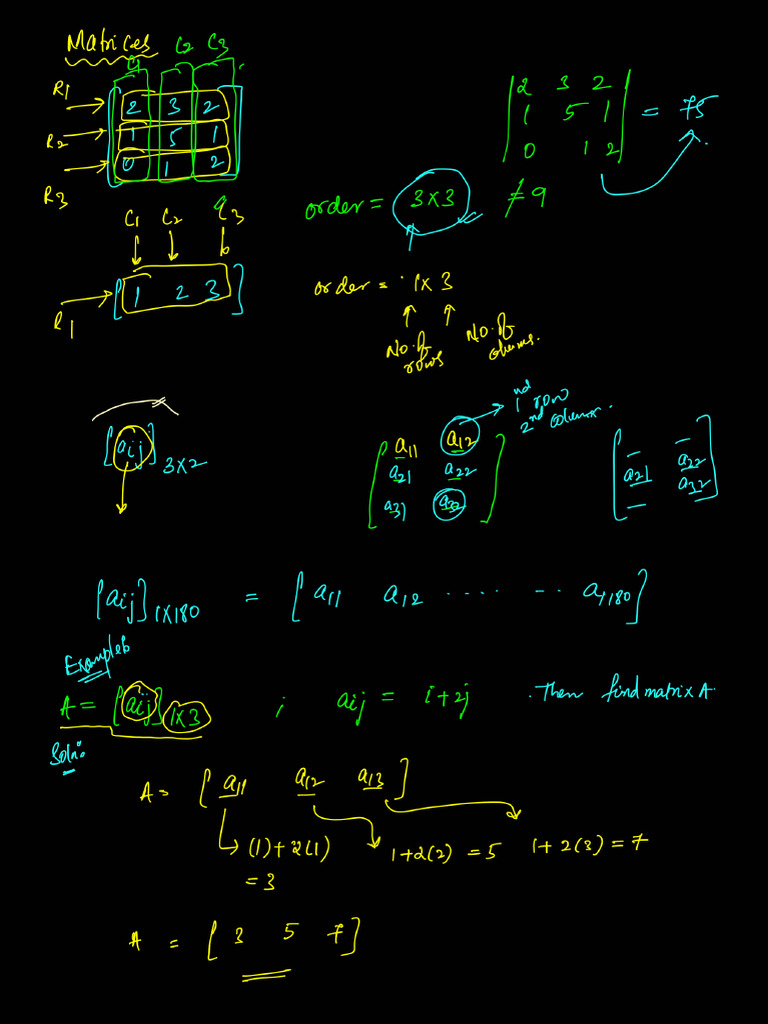 Matrices
C1 C2 C3
R1 2 3 2
R2 1 5 1
R3 0 1 2
|2 3 2|
|1 5 1| = 75
|0 1 2|
order = 3×3 ≠ 9
C1 C2 C3
R1 [1 2 3]
order = 1×3
No. of rows
No. of columns.
[aij]3×2
[a11 a12]
1nd row
2nd column.
a21 a22
a31
a21 a22
a32
[aij]1×180 = [a11 a12 ..... .. a1180]
Example
A = [aij]1×3 ; aij = i+2j . Then find matrix A.
Soln:
A = [a11 a12 a13]
(1)+2(1) 1+2(2) = 5 1+2(3) = 7
= 3
A = [3 5 7]